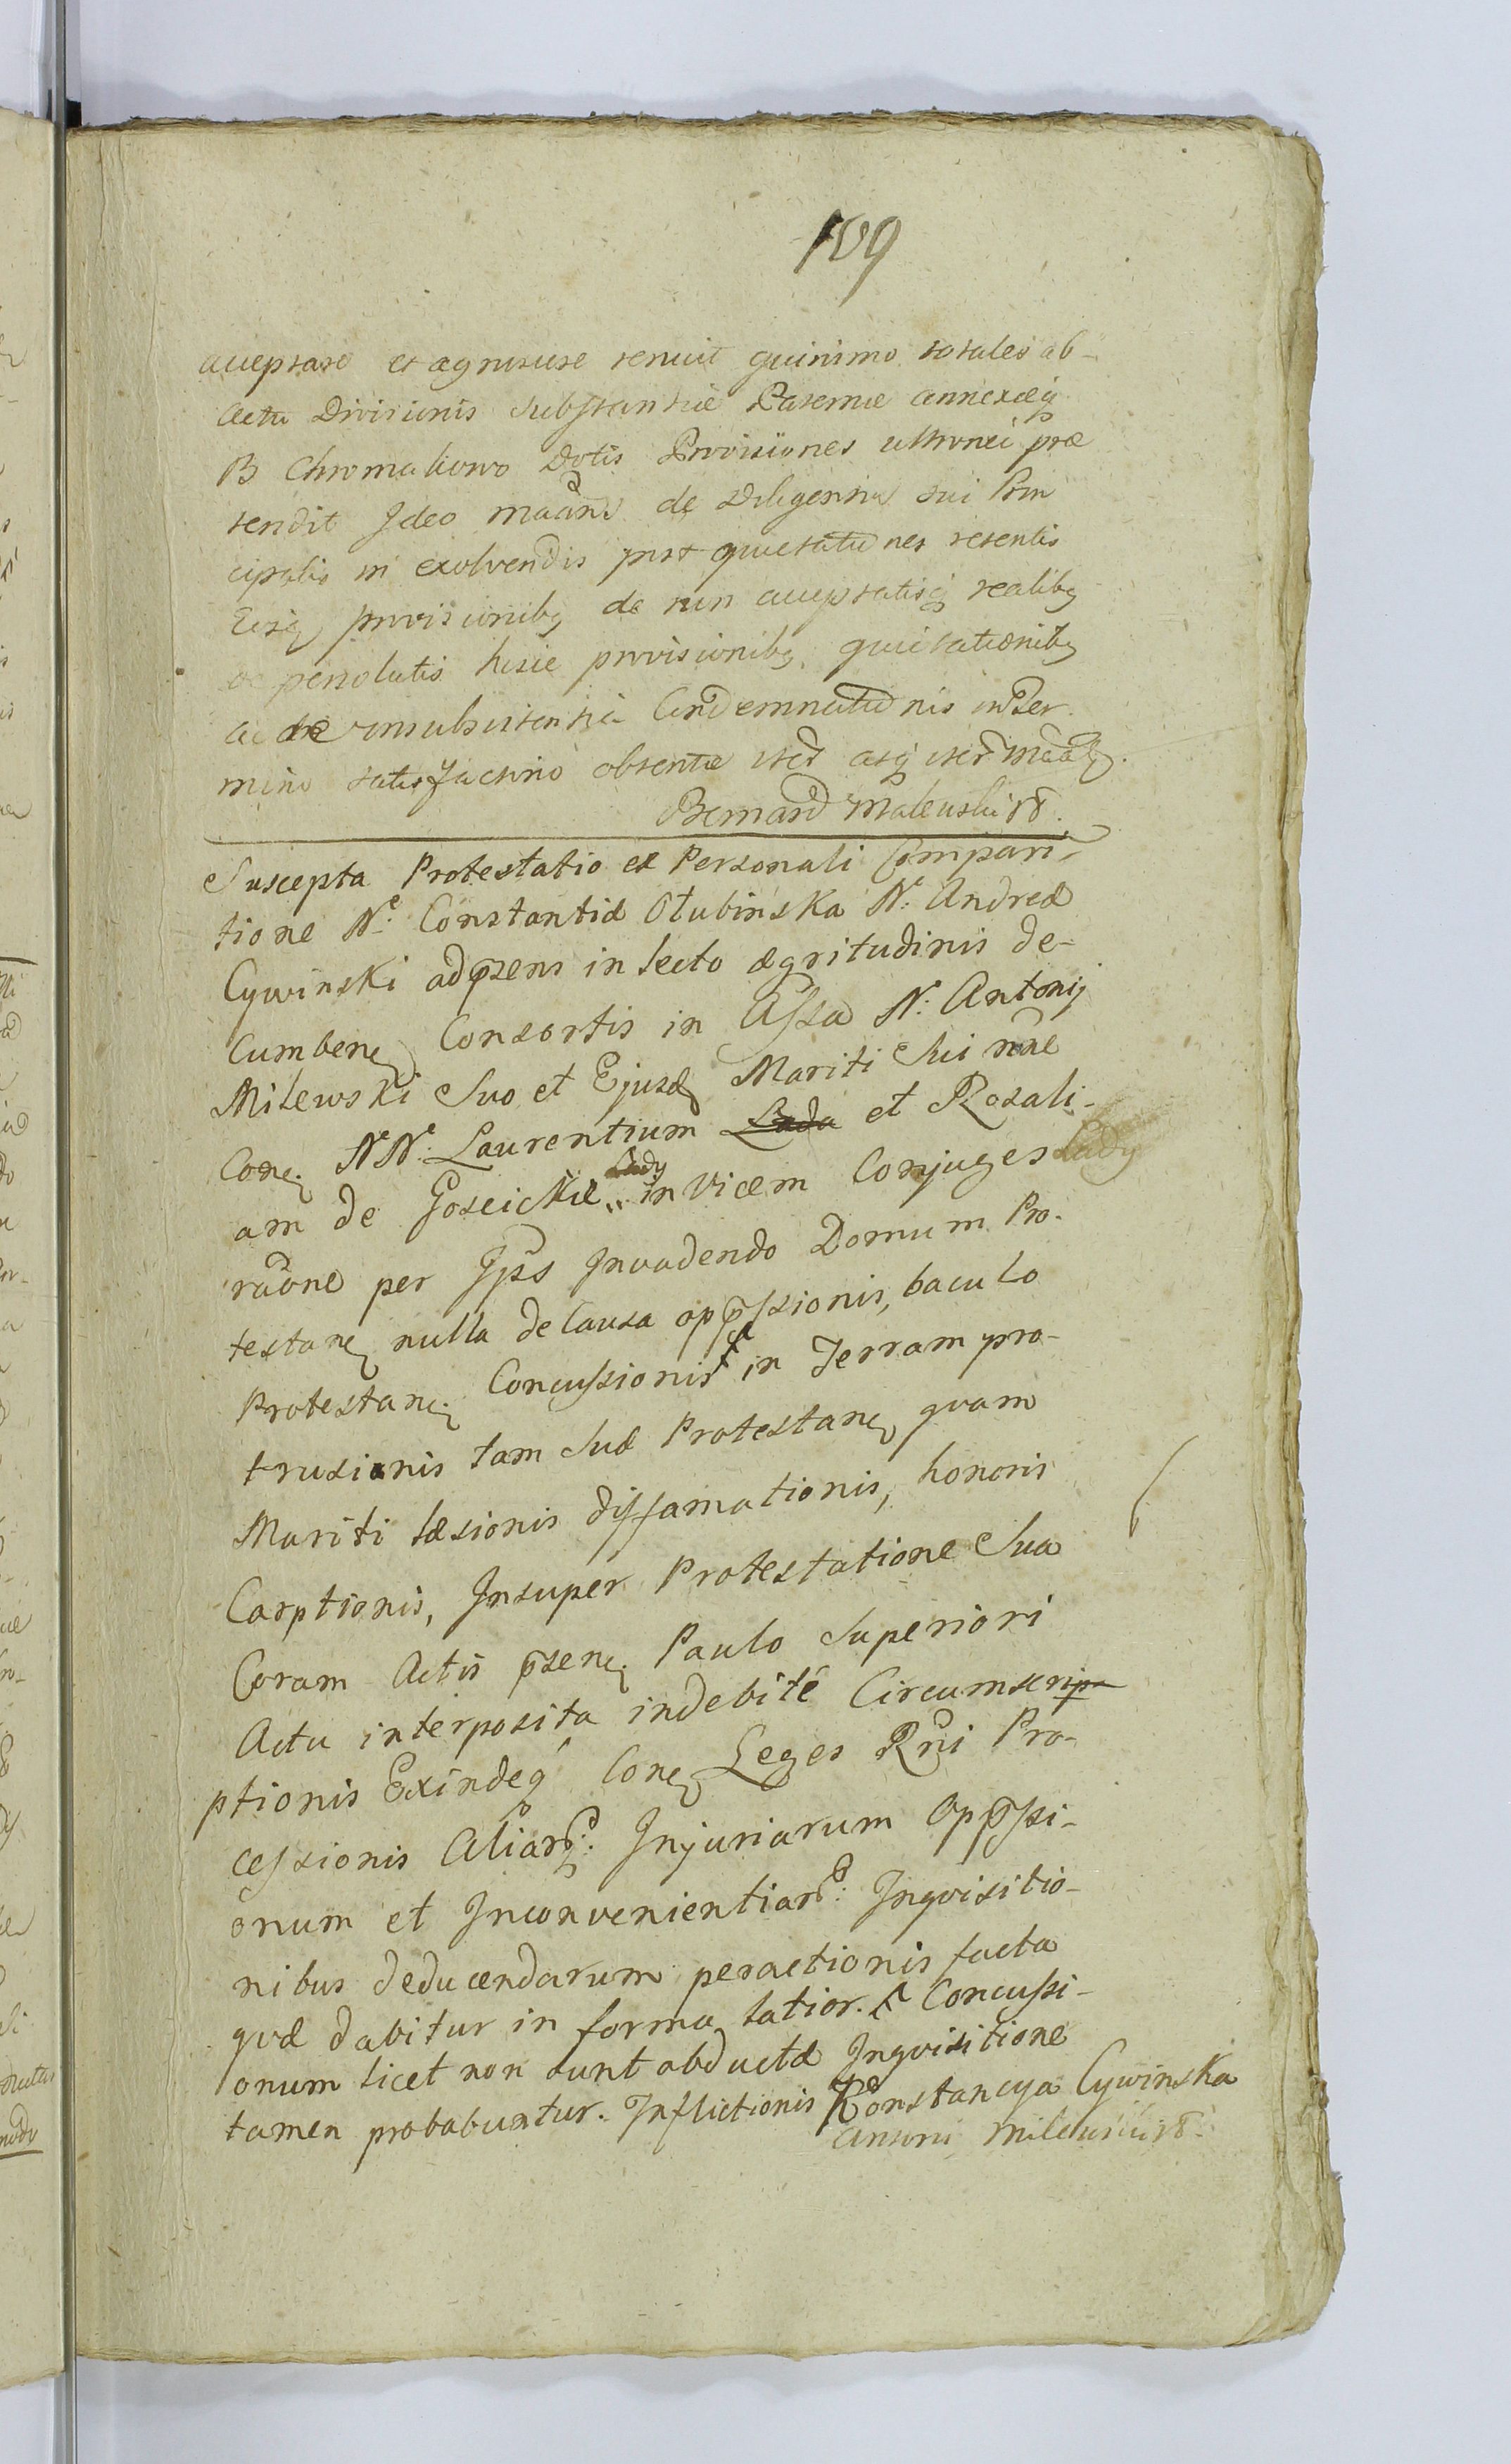 109
acceptare et agnoscere renuit quinimo totales ab-
Actu Divisionis Substantiæ Paternæ annexæq
B Chromakowo Dotis Provisiones ultronei præ
tendit Ideo de Diligentia sui Prin
cipalis in exolvendis post quietationes retentis
Eisq provisionibq de non acceptatisq realibq
ac persolutis hisce provisionibq quietationibq
ac de insubsistentia Condemnationis in Ter
mino satisfactino obtentæ iter atq iter
Bernard Malewski
Suscepta Protestatio ex Personali Compari-
tione Nᵉ Constantiæ Otubinska N: Andreæ
Cywinski adpræsens in lecto ægritudinis de-
Cumbenę Consortis in Assã N: Antonij
Milewski Suo et Ejusdę Mariti Sui nõe
Conę NN: Laurentium Lada et Rosali-
am de Goseickie Lady in Vicem Conjuges Lady
rãone per Ip̃s Invadendo Domum Pro-
testanę nulla de Causa opp̃ssionis, baculo
Protestanę Concussionis in Terram pro-
trusionis tam Suæ Protestanę quam
Mariti læsionis diffamationis, honoris
Carptionis, Insuper Protestatione Sua
Coram Actis p̃senę Paulo Superiori
Actu interposita indebité Circumscrip
ptionis Exindeq Conę Leges Rñi Pro-
cessionis Aliarq: Injuriarum Opp̃ssi-
onum et Inconvenientiar: Inqvisitio-
nibus deducendarum peractionis facta
qvæ dabitur in forma latior. Concussi-
onum licet non sunt obductæ Inqvisitione
tamen probabuntur. Inflictionis Konstancya Cywinska
Antoni Milewski